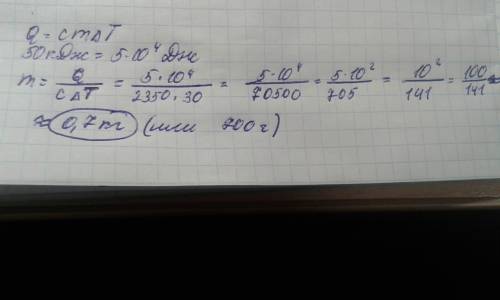 Q = cmΔT
50кДж = 5·10⁴ Дж
m = Q/cΔT = 5·10⁴/2350·30 = 5·10⁴/70500 = 5·10²/705 = 10²/141 = 100/141 ≈
≈ 0,7 кг (или 700г)